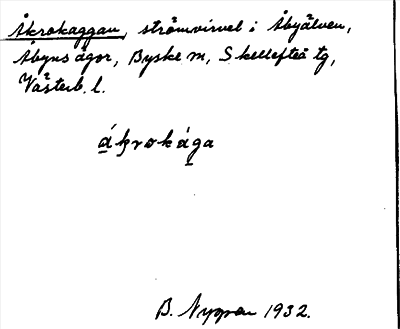 Åkrokaggan, strömvirvel i Åbyälven,
Åbyns ägor, Byske sn, Skellefteå tg,
Västerb. l.
ákrokága
B. Nygren 1932.